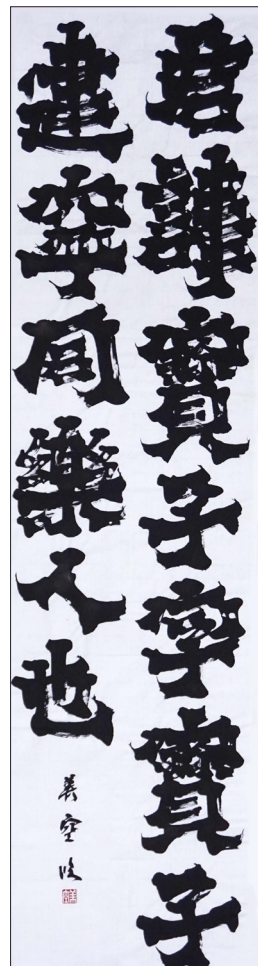 君諱寶子字寶子
建寧同樂人也